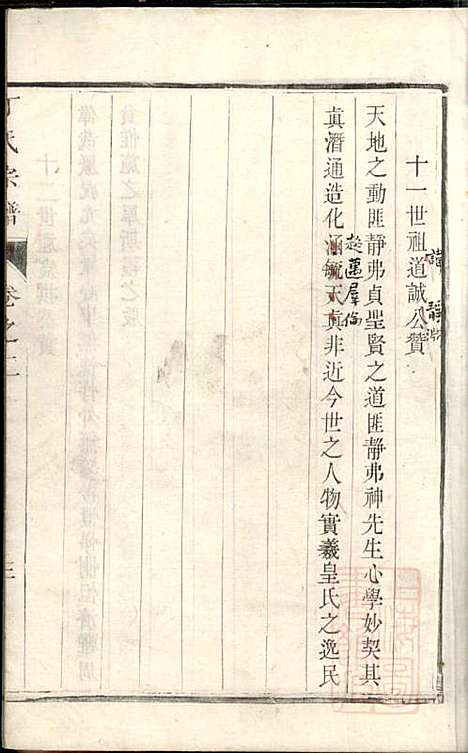 十一世祖道誠公贊
諱靜淵
天地之動匪靜弗貞聖賢之道匪靜弗神先生心學妙契其
真潛通造化涵毓天真非近今世之人物實羲皇氏之逸民
超邁羣倫
丁氏宗譜 卷之二 三